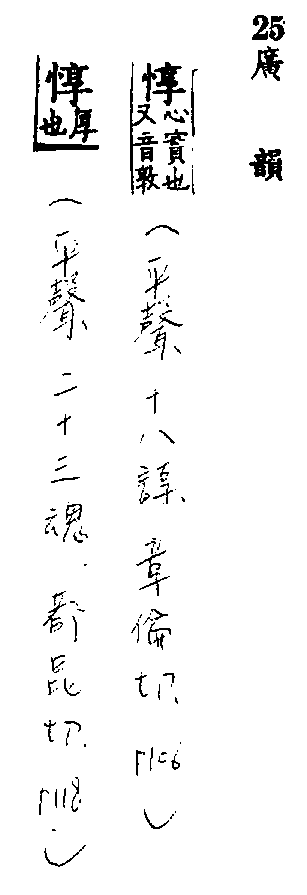 25廣韻
惇心實也又音敦(平聲、十八諄、章倫切、P106)
惇厚也(平聲、二十三魂、都昆切、P118)